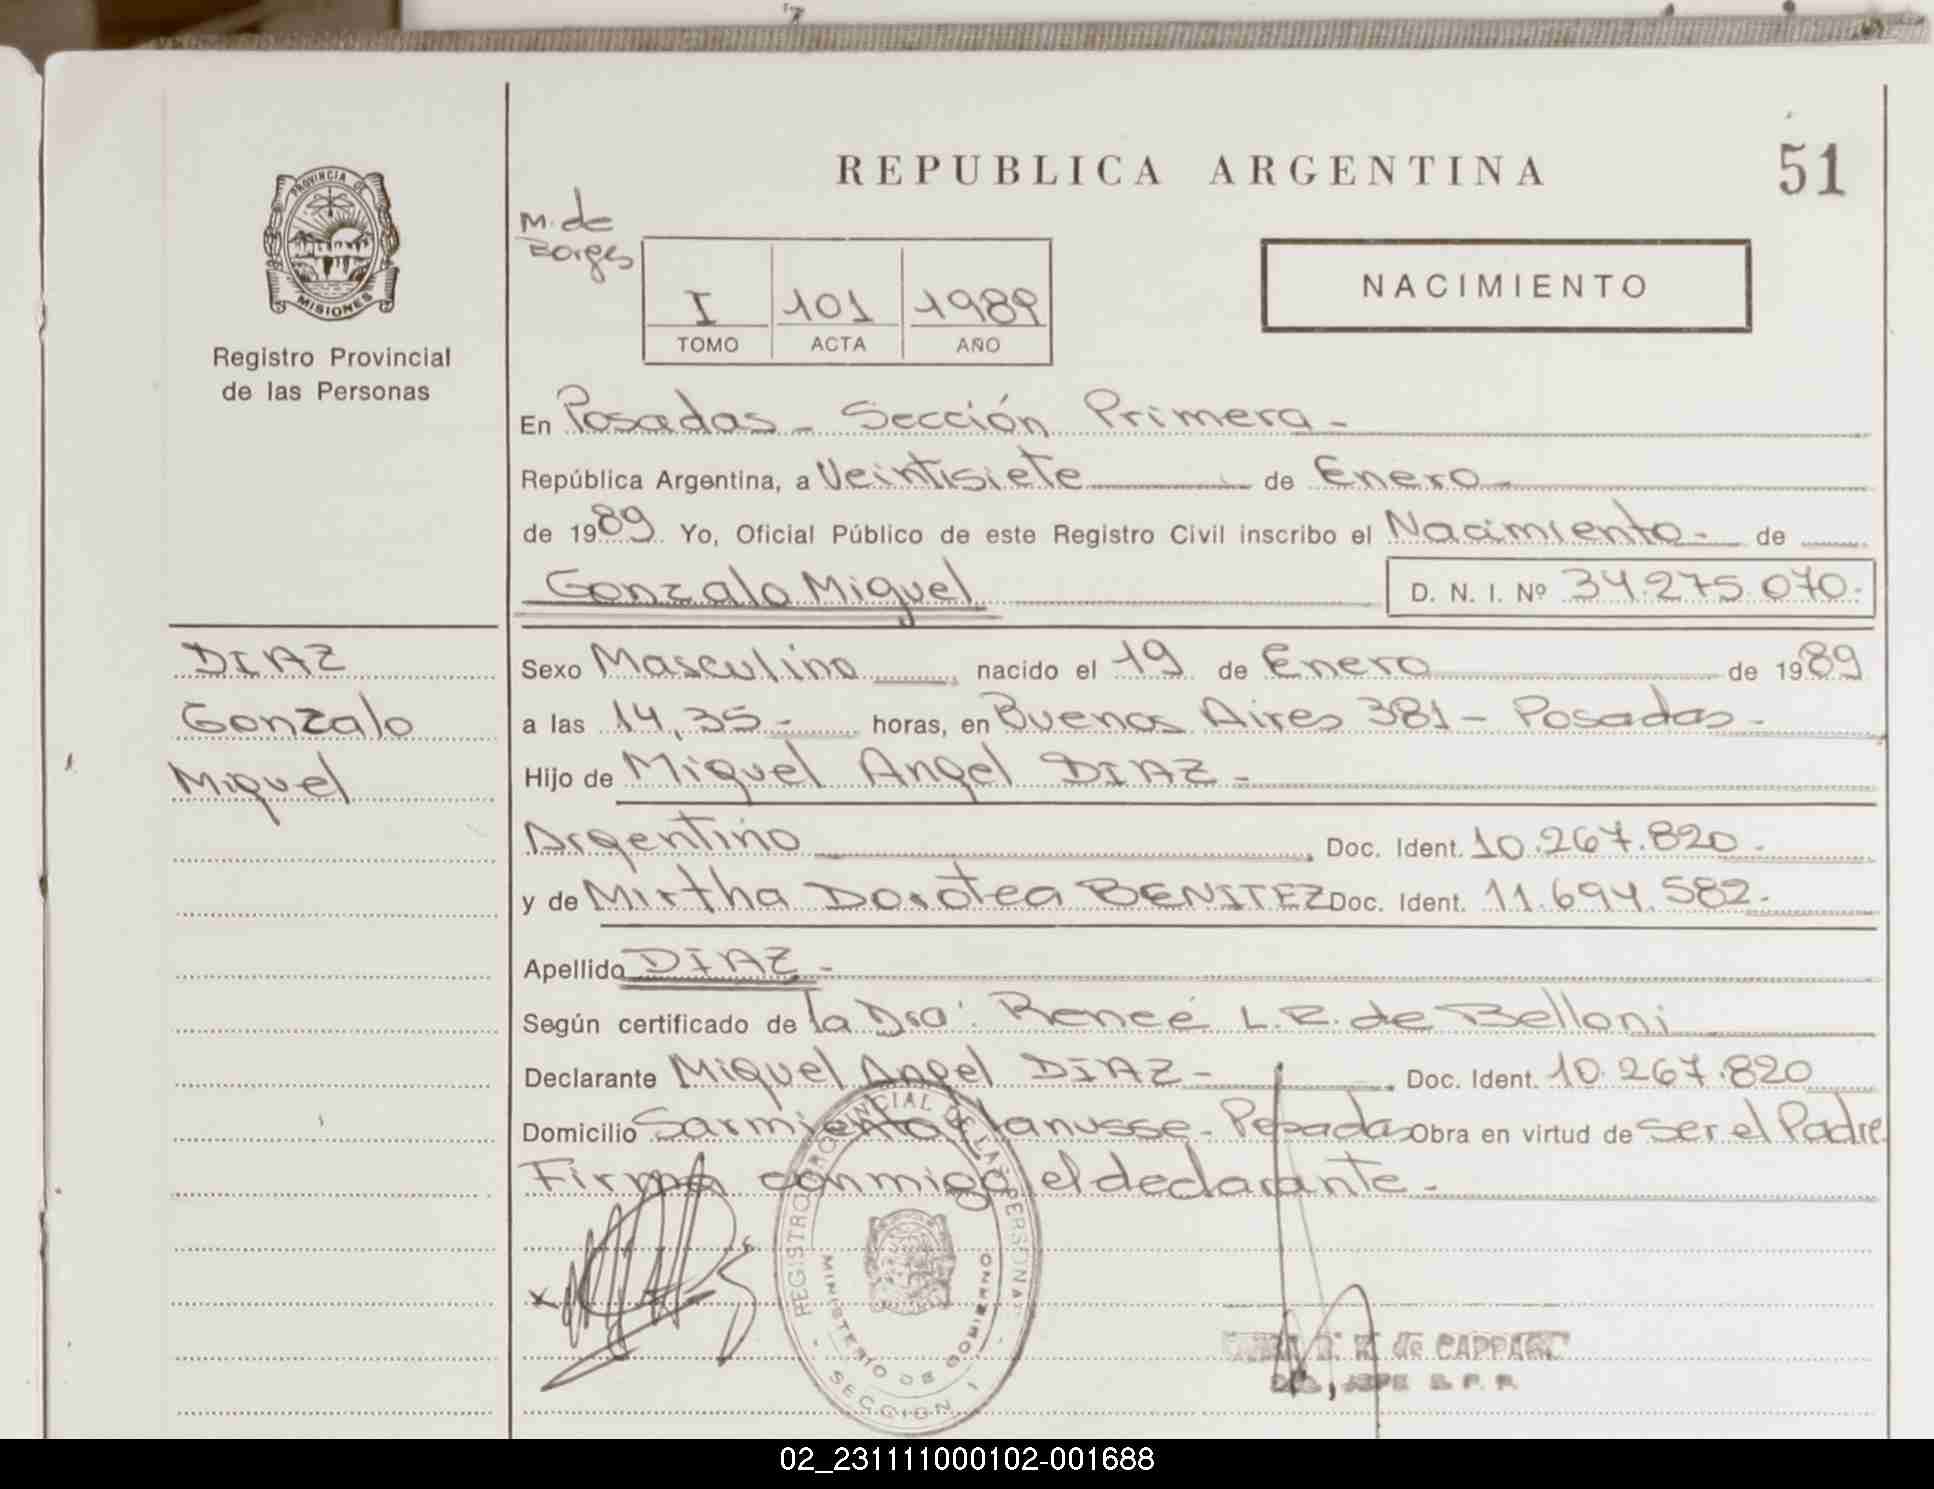 51
REPUBLICA ARGENTINA
PROVINCIA DE
MISIONES
Registro Provincial
de las Personas
M. de
Borges
NACIMIENTO
I 101 1989
TOMO ACTA AÑO
En Posadas - Sección Primera -
República Argentina, a Veintisiete de Enero -
de 1989 Yo, Oficial Público de este Registro Civil inscribo el Nacimiento - de
Gonzalo Miguel D. N. I. Nº 34.275.070.-
DIAZ
Gonzalo
Miguel
Sexo Masculino nacido el 19 de Enero de 1989
a las 14,35 - horas, en Buenos Aires 381 - Posadas -
Hijo de Miguel Angel DIAZ -
Argentino Doc. Ident. 10.267.820 -
y de Mirtha Dorotea BENITEZ Doc. Ident. 11.694.582 -
Apellido DIAZ -
Según certificado de la Dra. Reneé L.R. de Belloni
Declarante Miguel Angel DIAZ - Doc. Ident. 10.267.820
Domicilio Sarmiento y Lanusse - Posadas Obra en virtud de ser el Padre
Firma conmigo el declarante -
REGISTRO PROVINCIAL DE LAS PERSONAS
MINISTERIO DE GOBIERNO
SECCION 1
de CAPPARE
JEFE
02_231111000102-001688